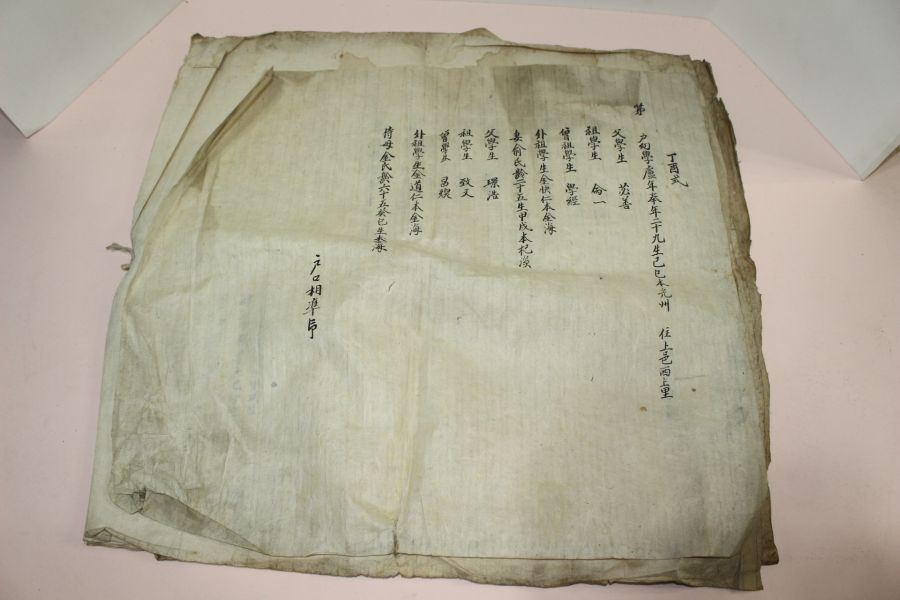 丁酉式
第 戶幼學盧年奉年二十九生己巳本光州 住上邑西上里
父學生 善
祖學生 侖一
曾祖學生 學經
外祖學生金俱仁本金海
妻俞氏齡二十五生甲戌本杞溪
父學生 璟浩
祖學生 致文
曾學生 昌煥
外祖學生金道仁本金海
侍母金氏齡六十五癸巳生本海
戶口相準印